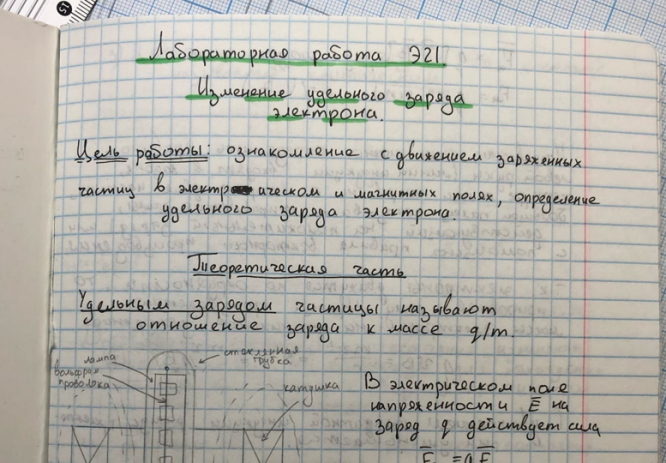 15
Лабораторная работа Э21.
Изменение удельного заряда
электрона.
Цель работы: ознакомление с движением заряженных
частиц в электрическом и магнитных полях, определение
удельного заряда электрона.
Теоретическая часть
Удельным зарядом частицы называют
отношение заряда к массе q/m.
лампа
стеклянная
трубка
вольфрам
проволока
катушка
В электрическом поле
напряженности E̅ на
заряд q действует сила
= q E̅